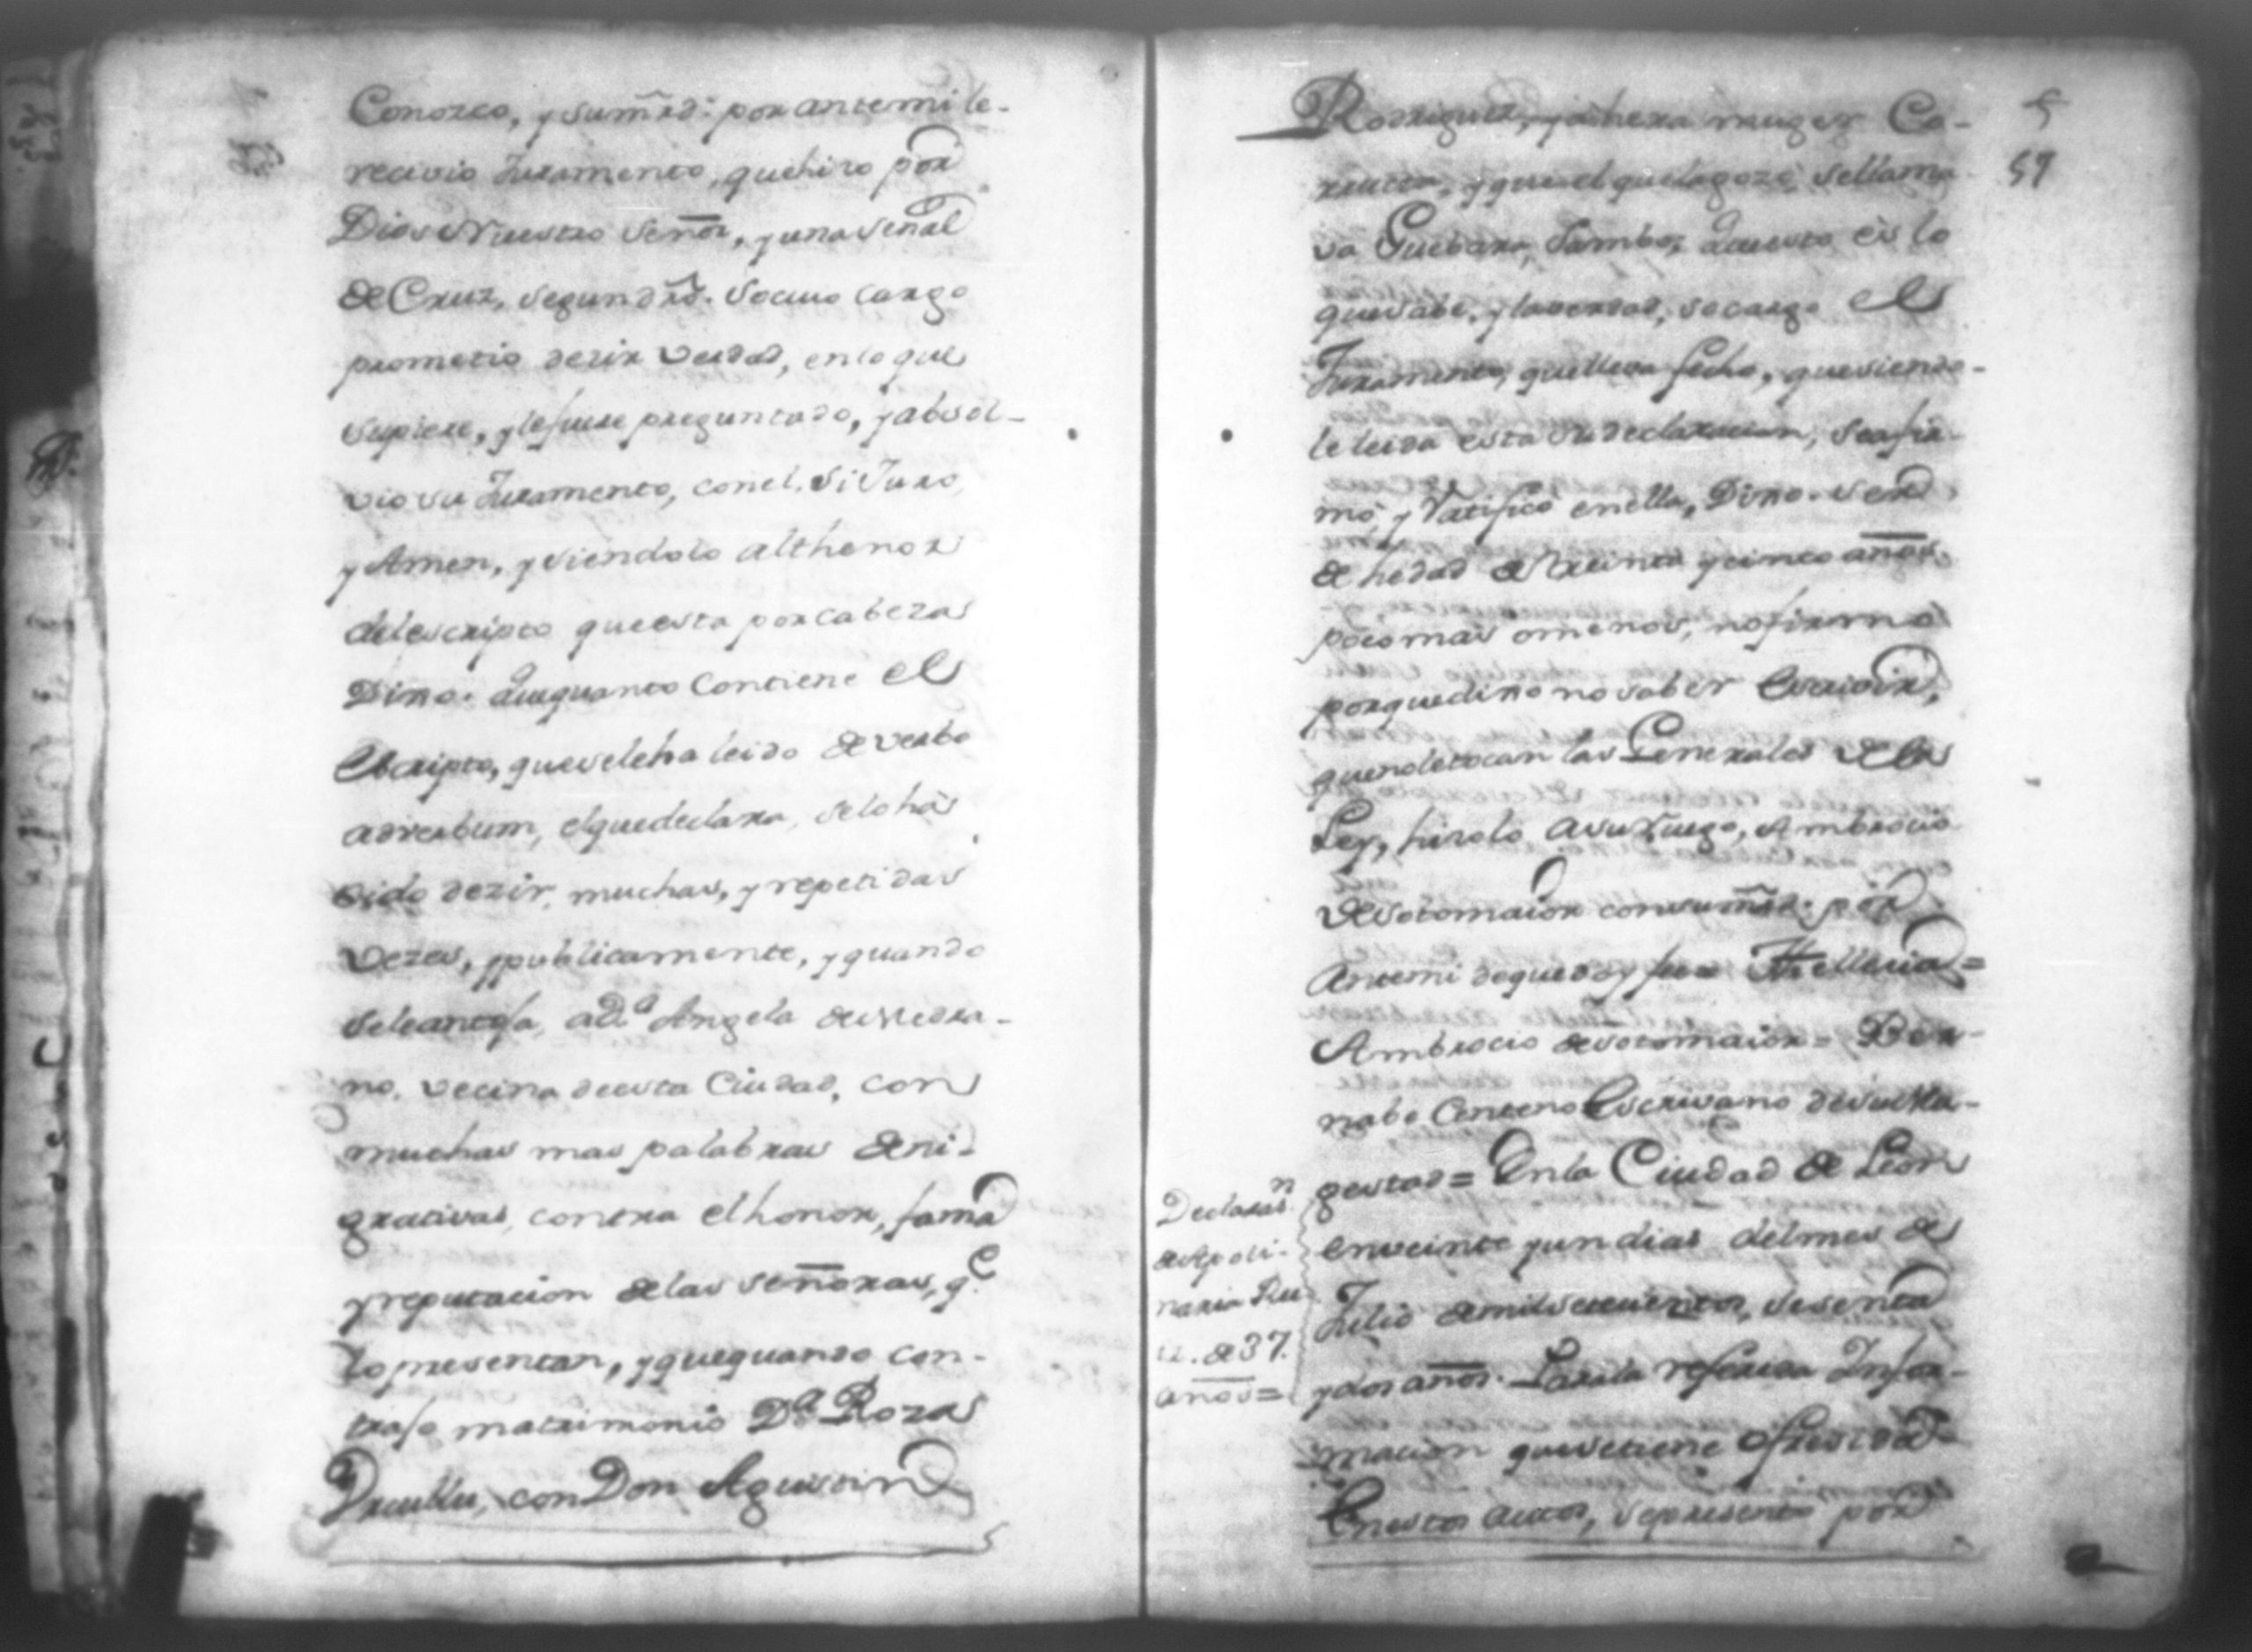 Conozco, y sumrd. por antemi le-
recivio Juramento, quehizo por
Dios Nuestro Señor, y una señal
de Cruz, segun dro. socuio cargo
prometio dezir verdad, enlo que
supiere, y lefuere preguntado, y absol-
vio su Juramento, conel, Si Juro,
y Amen, y siendolo althenor
delescripto que esta por cabeza
Dixo. Que quanto Contiene el
Escripto, que sele ha leido de verbo
adverbum, elquedeclara, selo hà
oido dezir, muchas, y repetidas
vezes, y publicamente, y quando
seleantoja, a D.ª Angela
no, vecina de esta Ciudad, con
muchas mas palabras deni-
grativas, contra elhonor, fama
y reputacion delas señoras, q.e
lo presentan, y que quando con-
trajo matrimonio D.ª Roza
con Don Agustin
Rodriguez, ya hera muger Co-
rrupta, y que el que la gozó, se llama
va Guebara, Sambo, Que esto es lo
que sabe, y la verdad, so cargo el
Juramento, que lleva fecho, que siendo-
le leida esta su declaracion, se afir-
mò, y Ratificò en ella, Dixo. ser
de hedad de treinta y cinco años,
poco mas omenos, no firmò
porque dixo no saber Escrivir,
que no le tocan las Generales dela
Ley, hizolo a su Ruego, Ambrocio
de Sotomaior con sumrd. por
Antemi de que doy fee =
Ambrocio de Sotomaior = Ber-
nabe Centeno Escrivano de su Ma-
gestad = En la Ciudad de Leon
en veinte y un dias del mes de
Julio de mil setecientos, sesenta
y dos años. Para la referida Infor-
macion que se tiene ofrecida
En estos autos, se presentò por
Declaras.n
de Apoli-
naria Ru
iz. de 37.
años =
5
59